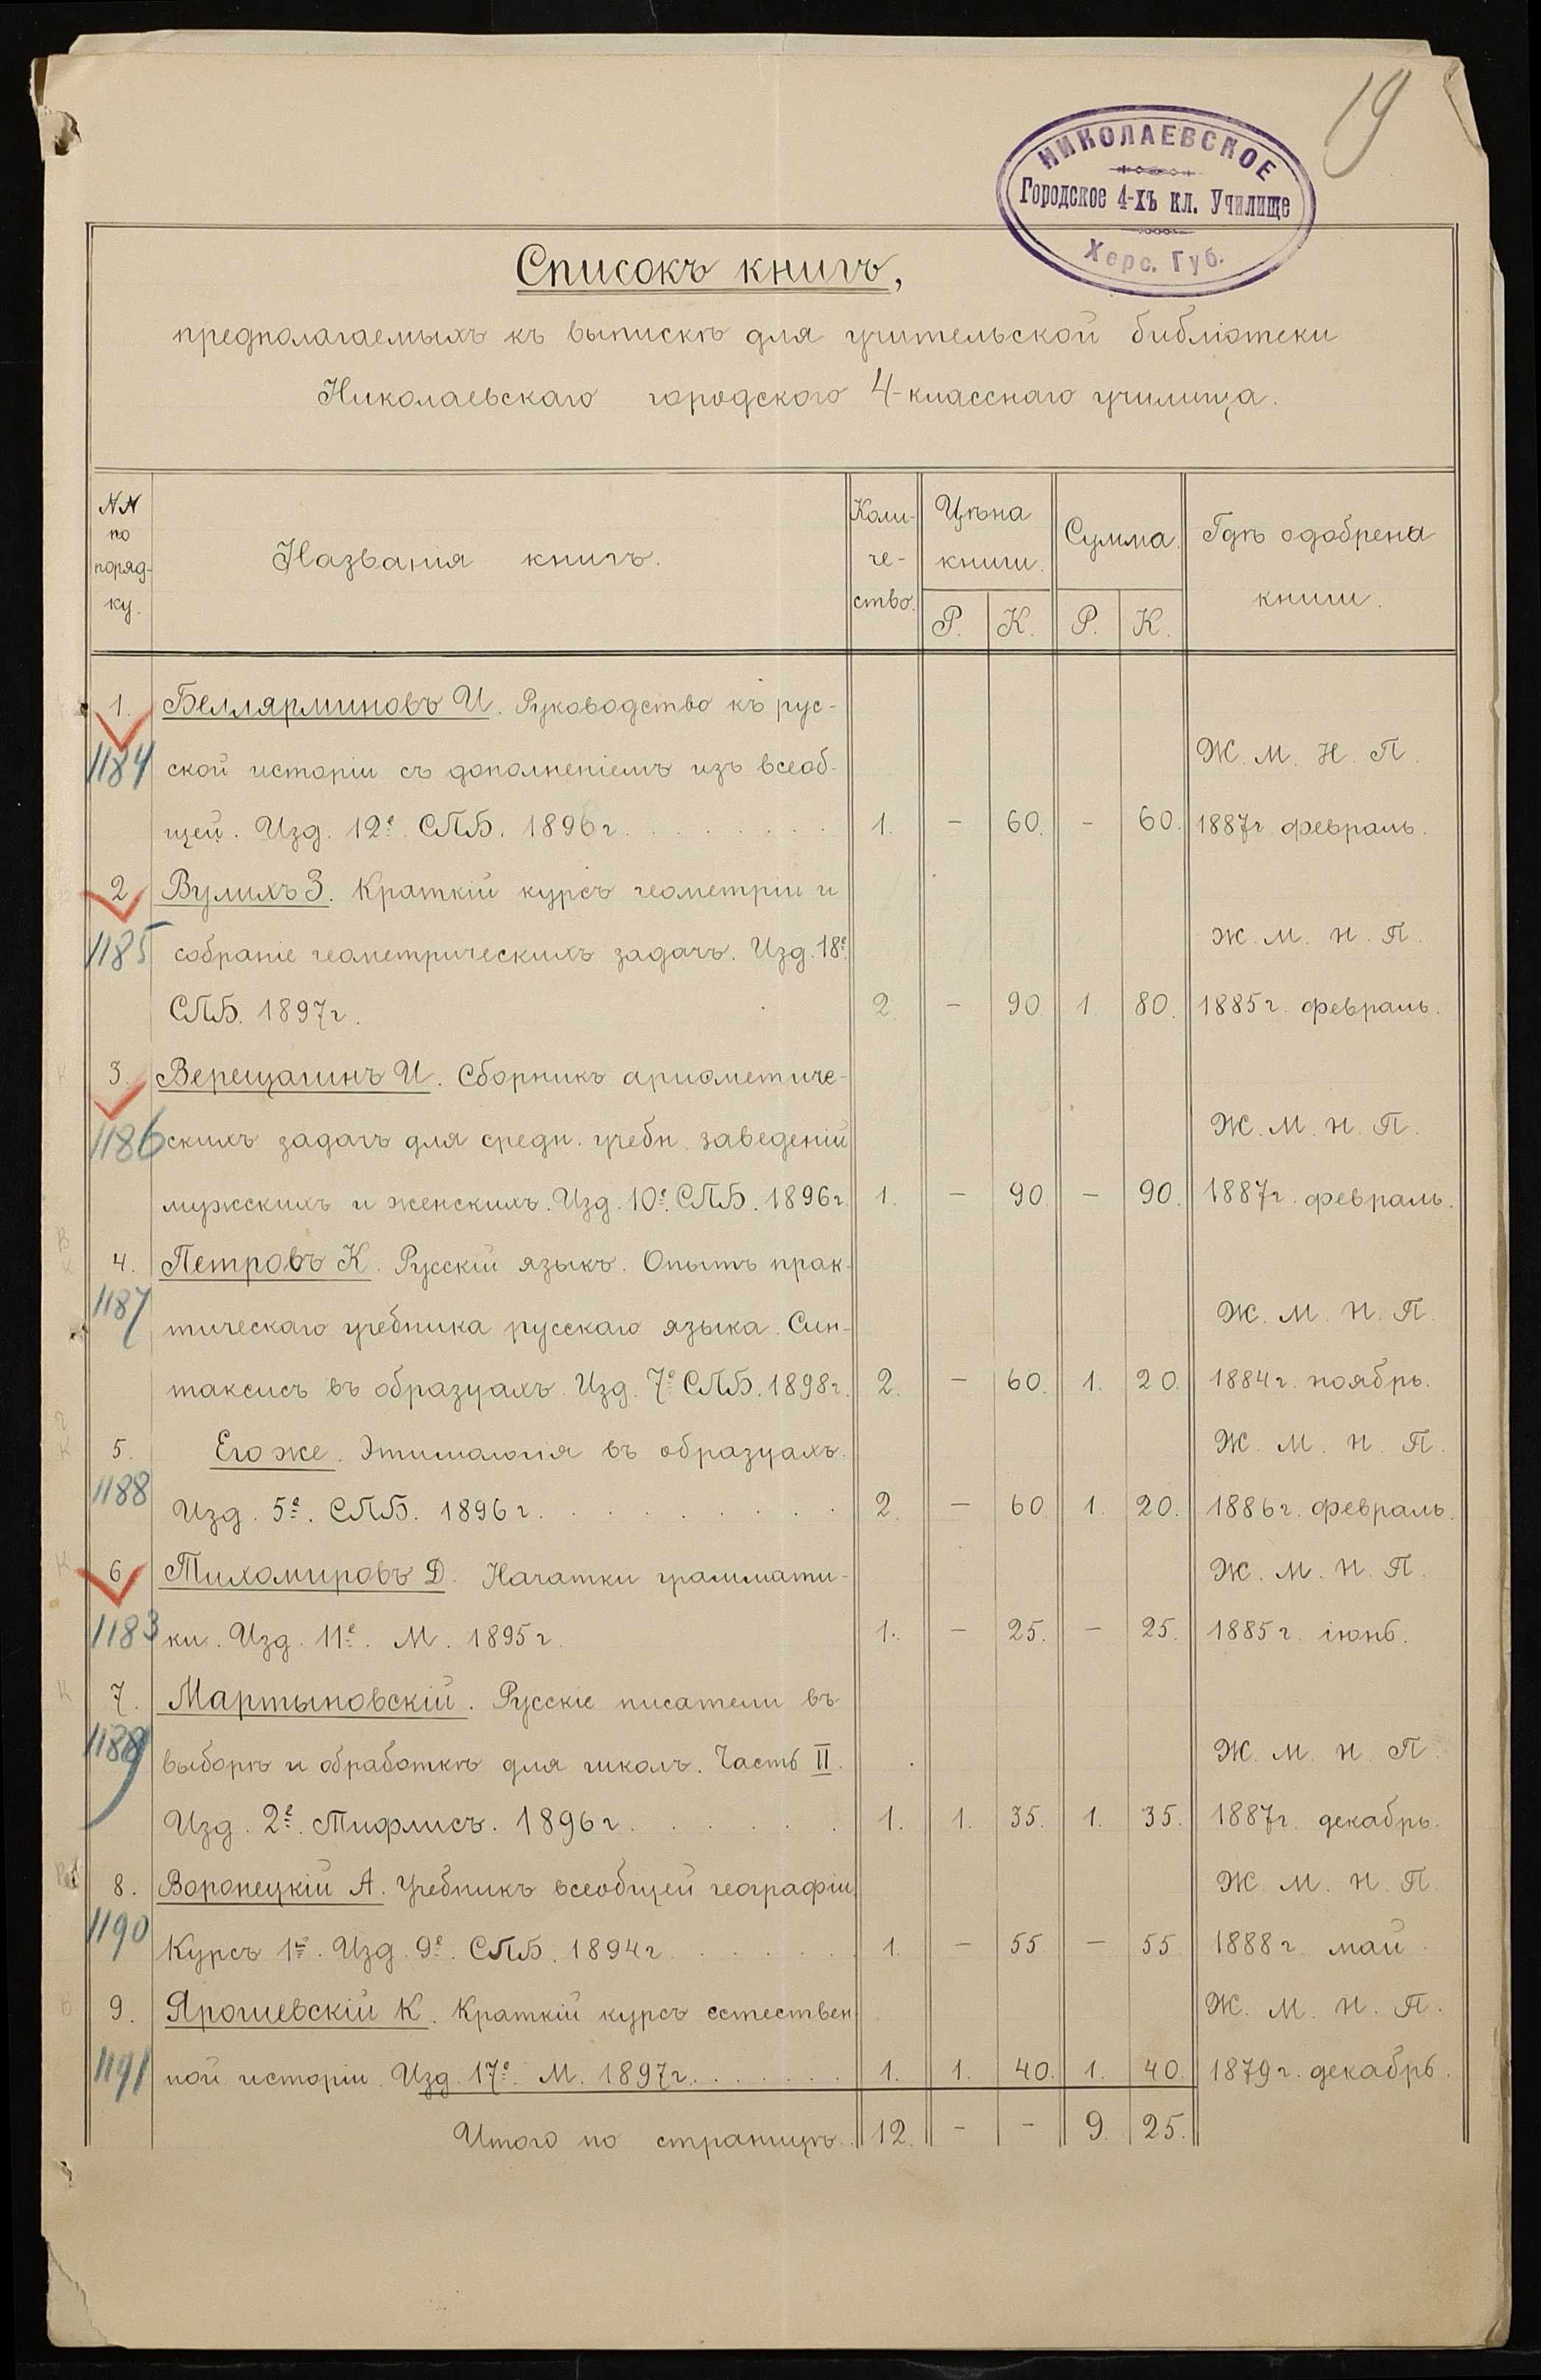 19
НИКОЛАЕВСКОЕ
Городское 4-хъ кл. Училище
Херс. Губ.
Списокъ книгъ,
предполагаемыхъ къ выпискѣ для учительской библіотеки
Николаевскаго городского 4-класснаго училища.
NN по поряд- ку.
Названія книгъ.
Коли- че- ство.
Цѣна книги.
Р. К.
Сумма.
Р. К.
Гдѣ одобрена книги.
1. Беллярминовъ И. Руководство къ рус-
1184 ской исторіи съ дополненіемъ изъ всеоб- Ж. М. Н. П.
щей. Изд. 12е. СПБ. 1896г. 1. – 60. – 60. 1887г. февраль.
2 Вулихъ З. Краткій курсъ геометріи и
1185 собраніе геометрическихъ задачъ. Изд. 18е. Ж. М. Н. П.
СПБ. 1897г. 2. – 90. 1. 80. 1885г. февраль.
3. Верещагинъ И. Сборникъ ариѳметиче-
1186 скихъ задачъ для средн. учебн. заведеній Ж. М. Н. П.
мужскихъ и женскихъ. Изд. 10е. СПБ. 1896г. 1. – 90. – 90. 1887г. февраль.
4. Петровъ К. Русскій языкъ. Опытъ прак-
1187 тическаго учебника русскаго языка. Син- Ж. М. Н. П.
таксисъ въ образцахъ. Изд. 7е СПБ. 1898г. 2. – 60. 1. 20. 1884г. ноябрь.
5. Его же. Этимологія въ образцахъ. Ж. М. Н. П.
1188 Изд. 5е. СПБ. 1896г. 2. – 60. 1. 20. 1886г. февраль.
6 Тихомировъ Д. Начатки граммати- Ж. М. Н. П.
1183 ки. Изд. 11е. М. 1895г. 1. – 25. – 25. 1885г. іюнь.
7. Мартыновскій. Русскіе писатели въ
1189 выборѣ и обработкѣ для школъ. Часть II. Ж. М. Н. П.
Изд. 2е. Тифлисъ. 1896г. 1. 1. 35. 1. 35. 1887г. декабрь.
8. Воронецкій А. Учебникъ всеобщей географіи Ж. М. Н. П.
1190 Курсъ 1й. Изд. 9е. СПБ. 1894г. 1. – 55 – 55 1888г. май.
9. Ярошевскій К. Краткій курсъ естествен Ж. М. Н. П.
1191 ной исторіи. Изд. 17е. М. 1897г. 1. 1. 40. 1. 40. 1879г. декабрь.
Итого по страницѣ. 12. – – 9. 25.